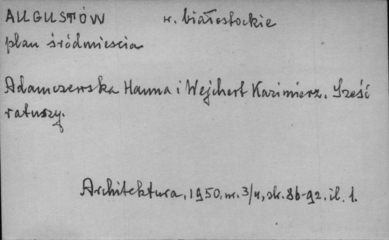 AUGUSTÓW w. białostockie
plan śródmieścia
Adamczewska Hanna i Wejchert Kazimierz. Sześć
ratuszy.
Architektura, 1950, nr. 3/4, str. 86-92, il. 1.